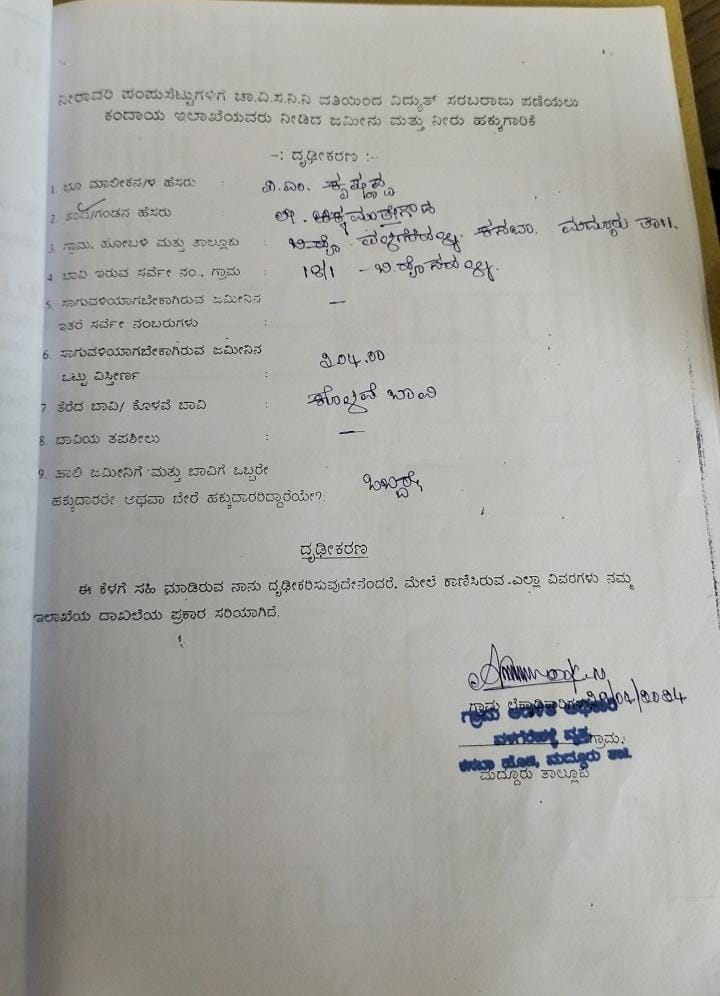 ನೀರಾವರಿ ಪಂಪುಸೆಟ್ಟುಗಳಿಗೆ ಚಾ.ವಿ.ಸ.ನಿ.ನಿ ವತಿಯಿಂದ ವಿದ್ಯುತ್ ಸರಬರಾಜು ಪಡೆಯಲು
ಕಂದಾಯ ಇಲಾಖೆಯವರು ನೀಡಿದ ಜಮೀನು ಮತ್ತು ನೀರು ಹಕ್ಕುಗಾರಿಕೆ
-: ದೃಢೀಕರಣ :-
1. ಭೂ ಮಾಲೀಕನ/ಳ ಹೆಸರು : ಕೃಷ್ಣಪ್ಪ
2. ತಂದೆ/ಗಂಡನ ಹೆಸರು : ಲೇ.
3. ಗ್ರಾಮ, ಹೋಬಳಿ ಮತ್ತು ತಾಲ್ಲೂಕು : ಕಸಬಾ. ಮದ್ದೂರು ತಾ||.
4. ಬಾವಿ ಇರುವ ಸರ್ವೇ ನಂ., ಗ್ರಾಮ :
5. ಸಾಗುವಳಿಯಾಗಬೇಕಾಗಿರುವ ಜಮೀನಿನ —
ಇತರೆ ಸರ್ವೇ ನಂಬರುಗಳು :
6. ಸಾಗುವಳಿಯಾಗಬೇಕಾಗಿರುವ ಜಮೀನಿನ
ಒಟ್ಟು ವಿಸ್ತೀರ್ಣ : 
7. ತೆರೆದ ಬಾವಿ/ ಕೊಳವೆ ಬಾವಿ : ಕೊಳವೆ ಬಾವಿ
8. ಬಾವಿಯ ತಪಶೀಲು : —
9. ಹಾಲಿ ಜಮೀನಿಗೆ ಮತ್ತು ಬಾವಿಗೆ ಒಬ್ಬರೇ
ಹಕ್ಕುದಾರರೇ ಅಥವಾ ಬೇರೆ ಹಕ್ಕುದಾರರಿದ್ದಾರೆಯೇ?: ಒಬ್ಬರೇ
ದೃಢೀಕರಣ
ಈ ಕೆಳಗೆ ಸಹಿ ಮಾಡಿರುವ ನಾನು ದೃಢೀಕರಿಸುವುದೇನೆಂದರೆ, ಮೇಲೆ ಕಾಣಿಸಿರುವ ಎಲ್ಲಾ ವಿವರಗಳು ನಮ್ಮ
ಇಲಾಖೆಯ ದಾಖಲೆಯ ಪ್ರಕಾರ ಸರಿಯಾಗಿದೆ.
ಗ್ರಾಮ ಲೆಕ್ಕಾಧಿಕಾರಿಗಳು
ಗ್ರಾಮ ಆಡಳಿತ ಅಧಿಕಾರಿ
ವಳಗೆರೆಹಳ್ಳಿ ವೃತ್ತ ಗ್ರಾಮ,
ಕಸಬಾ ಹೋಬಳಿ, ಮದ್ದೂರು ತಾ||
ಮದ್ದೂರು ತಾಲ್ಲೂಕು